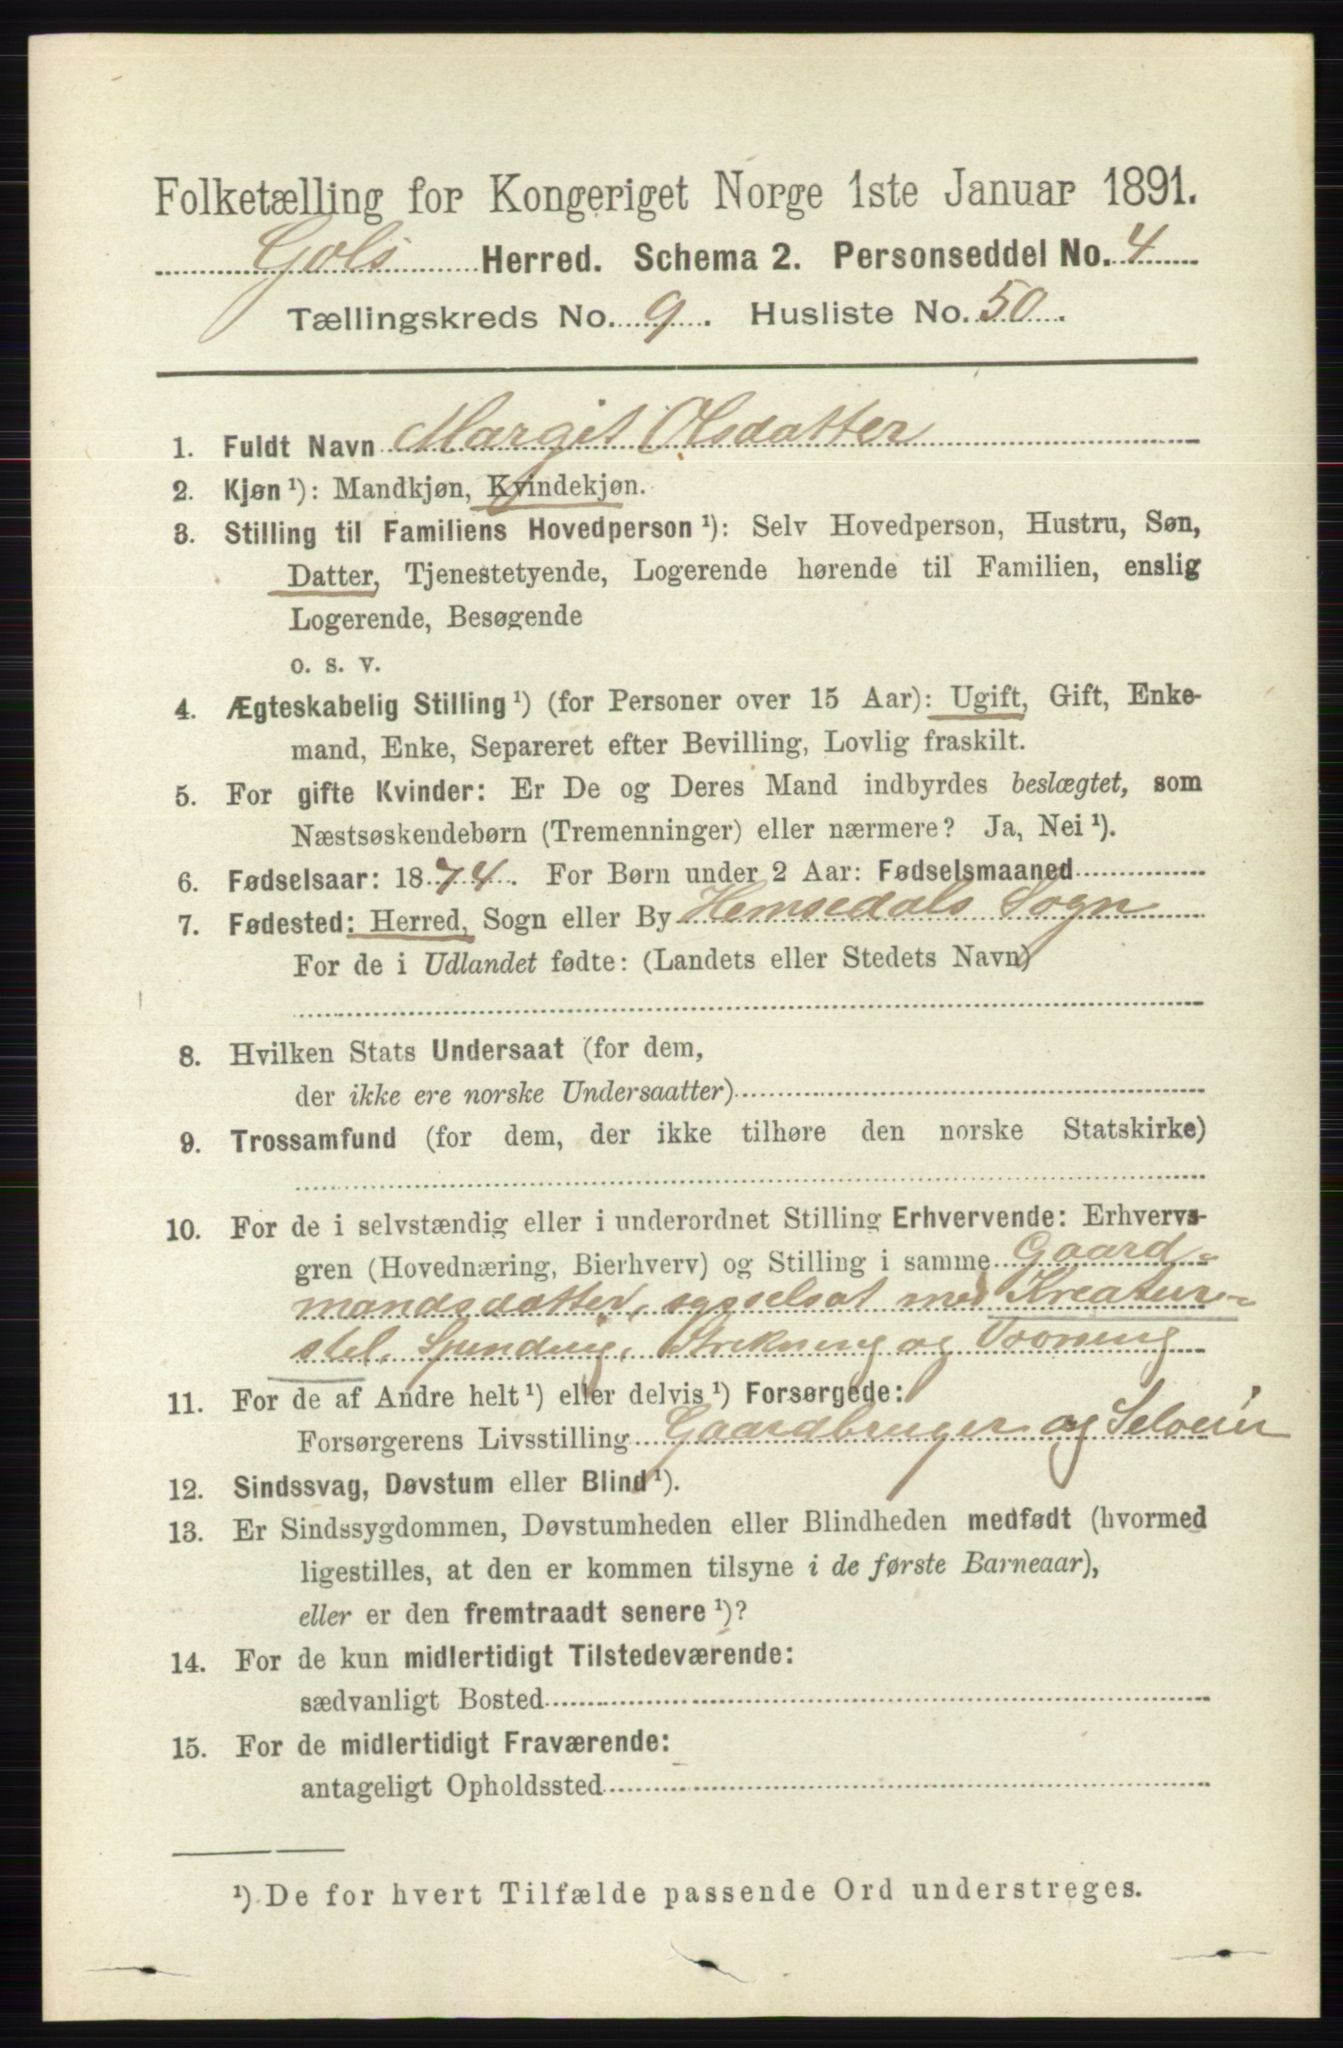 Folketælling for Kongeriget Norge 1ste Januar 1891.
Gols Herred. Schema 2. Personseddel No. 4
Tællingskreds No. 9. Husliste No. 50.
1. Fuldt Navn Margit Olsdatter
2. Kjøn ¹): Mandkjøn, Kvindekjøn.
3. Stilling til Familiens Hovedperson ¹): Selv Hovedperson, Hustru, Søn,
Datter, Tjenestetyende, Logerende hørende til Familien, enslig
Logerende, Besøgende
o. s. v.
4. Ægteskabelig Stilling ¹) (for Personer over 15 Aar): Ugift, Gift, Enke-
mand, Enke, Separeret efter Bevilling, Lovlig fraskilt.
5. For gifte Kvinder: Er De og Deres Mand indbyrdes beslægtet, som
Næstsøskendebørn (Tremenninger) eller nærmere? Ja, Nei ¹).
6. Fødselsaar: 1874. For Børn under 2 Aar: Fødselsmaaned
7. Fødested: Herred, Sogn eller By Hemsedals Sogn
For de i Udlandet fødte: (Landets eller Stedets Navn)
8. Hvilken Stats Undersaat (for dem,
der ikke ere norske Undersaatter)
9. Trossamfund (for dem, der ikke tilhøre den norske Statskirke)
10. For de i selvstændig eller i underordnet Stilling Erhvervende: Erhvervs-
gren (Hovednæring, Bierhverv) og Stilling i samme Gaard-
mandsdatter, sysselsat med Kreatur-
stel, Spinding, Strikning og Vævning
11. For de af Andre helt ¹) eller delvis ¹) Forsørgede:
Forsørgerens Livsstilling Gaardbruger og Selveier
12. Sindssvag, Døvstum eller Blind ¹).
13. Er Sindssygdommen, Døvstumheden eller Blindheden medfødt (hvormed
ligestilles, at den er kommen tilsyne i de første Barneaar),
eller er den fremtraadt senere ¹)?
14. For de kun midlertidigt Tilstedeværende:
sædvanligt Bosted
15. For de midlertidigt Fraværende:
antageligt Opholdssted
¹) De for hvert Tilfælde passende Ord understreges.